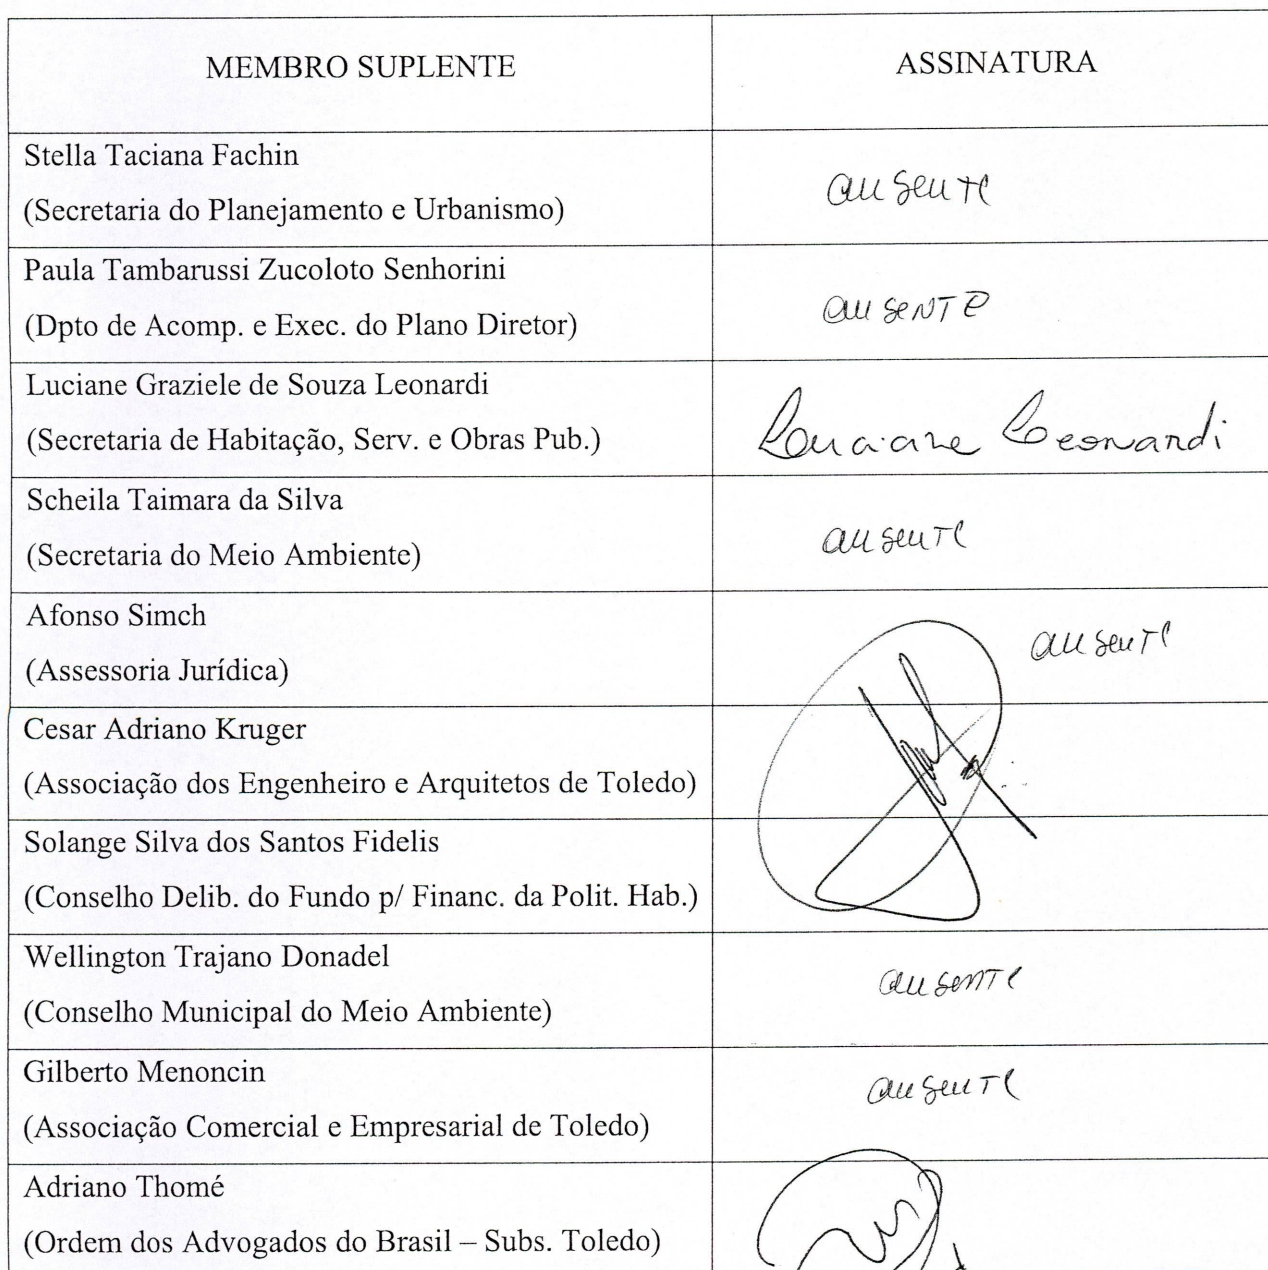 MEMBRO SUPLENTE ASSINATURA
Stella Taciana Fachin
(Secretaria do Planejamento e Urbanismo) ausente
Paula Tambarussi Zucoloto Senhorini
(Dpto de Acomp. e Exec. do Plano Diretor) ausente
Luciane Graziele de Souza Leonardi
(Secretaria de Habitação, Serv. e Obras Pub.) Luciane Leonardi
Scheila Taimara da Silva
(Secretaria do Meio Ambiente) ausente
Afonso Simch
(Assessoria Jurídica) ausente
Cesar Adriano Kruger
(Associação dos Engenheiro e Arquitetos de Toledo)
Solange Silva dos Santos Fidelis
(Conselho Delib. do Fundo p/ Financ. da Polit. Hab.)
Wellington Trajano Donadel
(Conselho Municipal do Meio Ambiente) ausente
Gilberto Menoncin
(Associação Comercial e Empresarial de Toledo) ausente
Adriano Thomé
(Ordem dos Advogados do Brasil – Subs. Toledo)